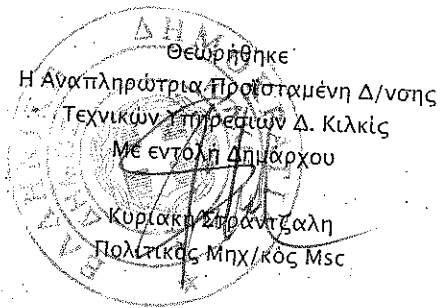 Θεωρήθηκε
Η Αναπληρώτρια Προϊσταμένη Δ/νσης
Τεχνικών Υπηρεσιών Δ. Κιλκίς
Με εντολή Δημάρχου
Κυριακή Στράντζαλη
Πολιτικός Μηχ/κός Msc